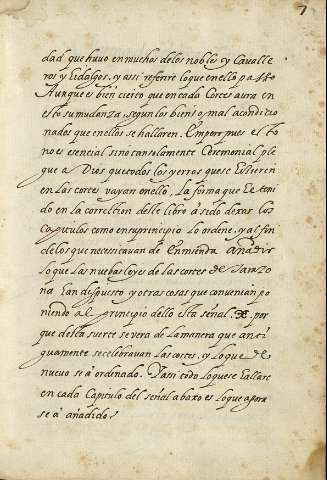 7
dad que huuo en muchos de los nobles y Cavalle
ros y hidalgos, y assi referire lo que en ello passo
Aunque es bien cierto que en cada Cortes aura en
esto su mudanza, segun los bien o mal acondicio
nados que en ellos se hallaren. Empero pues esto
no es esencial sino tan solamente Ceremonial ple
gue a Dios que todos los yerros que se hizieren
en las cortes vayan en ello. La forma que he teni
do en la correction deste libro a sido dexar los
Capitulos como en su principio lo ordene, y al fin
de los que necesitauan de Enmienda añadir
lo que las nuebas leyes de las cortes de Tarazo
na han dispuesto y otras cosas que convenian po
niendo al principio dello esta señal. por
que desta suerte se vera de la manera que anti
guamente se celebravan las cortes, y lo que de
nuevo se á ordenado. Y assi todo lo que se hallare
en cada Capitulo del señal abaxo es lo que agora
se á añadido.